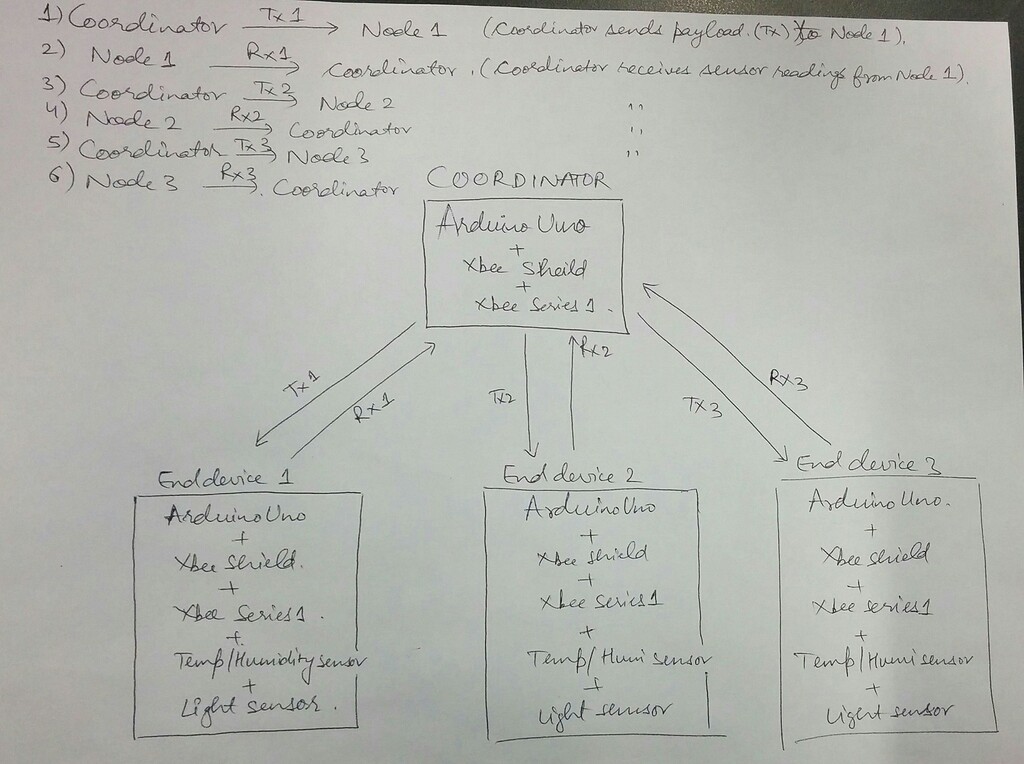 1) Coordinator Tx1 → Node 1 (Coordinator sends payload (Tx) to Node 1).
2) Node 1 Rx1 → Coordinator. (Coordinator receives sensor readings from Node 1).
3) Coordinator Tx2 → Node 2 ,,
4) Node 2 Rx2 → Coordinator ,,
5) Coordinator Tx3 → Node 3 ,,
6) Node 3 Rx3 → Coordinator
COORDINATOR
Arduino Uno
+
Xbee Sheild
+
Xbee Series 1.
Tx1
Rx1
Tx2
Rx2
Tx3
Rx3
End device 1
Arduino Uno
+
Xbee shield.
+
Xbee Series 1.
+
Temp/Humidity sensor
+
Light sensor.
End device 2
Arduino Uno
+
Xbee shield
+
Xbee series 1
+
Temp/Humi sensor
+
Light sensor
End device 3
Arduino Uno.
+
Xbee shield
+
Xbee series 1
+
Temp/Humi sensor
+
Light sensor